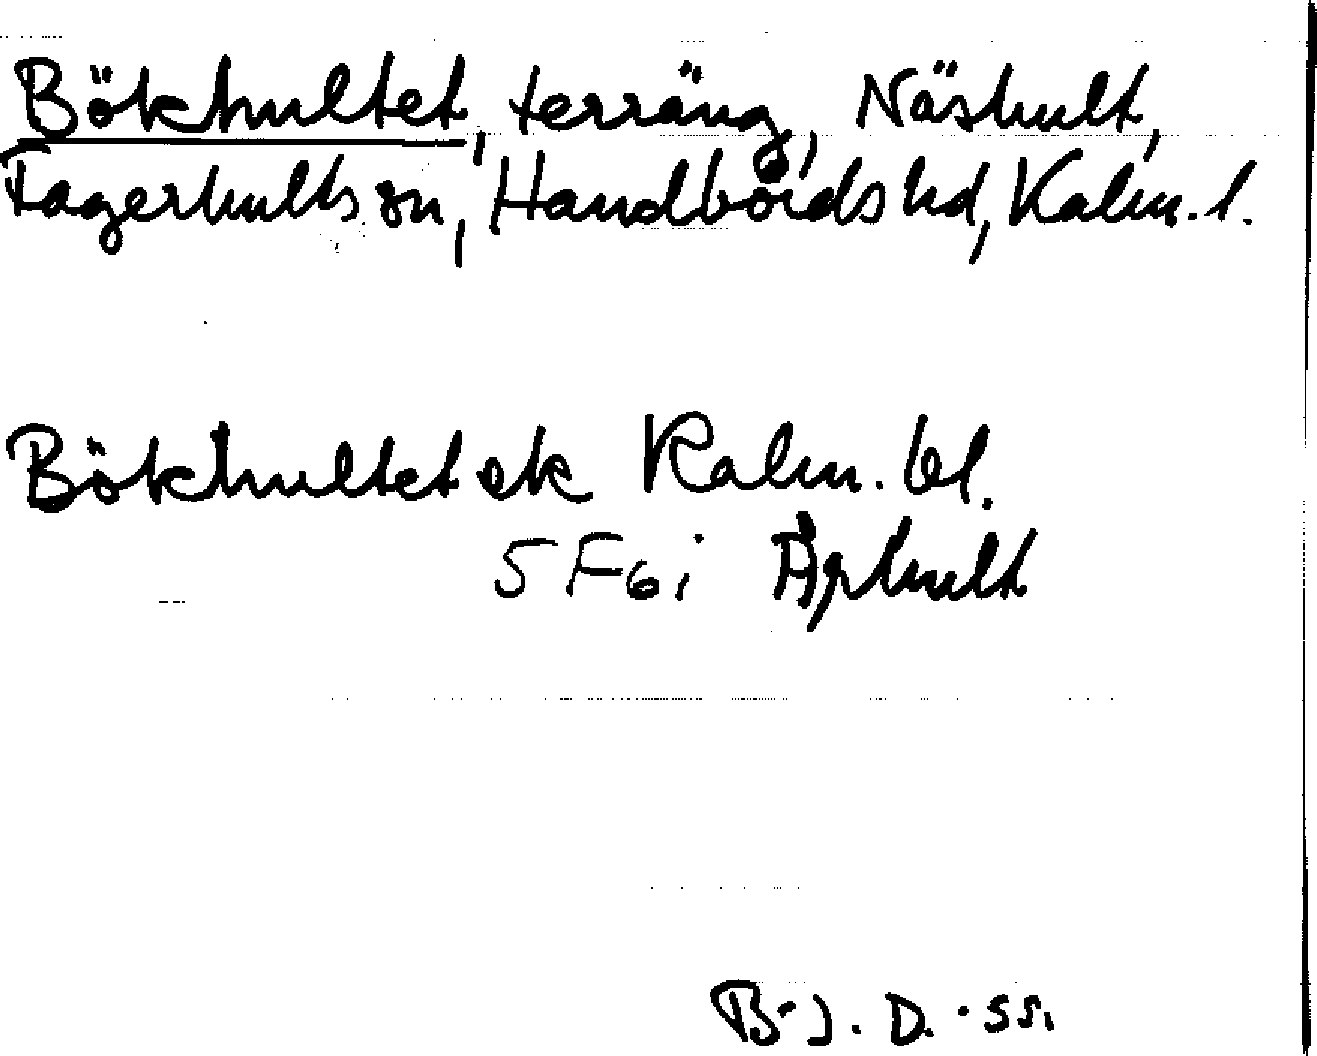 Bökhultet, terräng, Näshult,
Fagerhults sn, Handbörds hd, Kalm. l.
Bökhultet ek Kalm. bl.
5 F6i Äphult
B-J. D. -55.